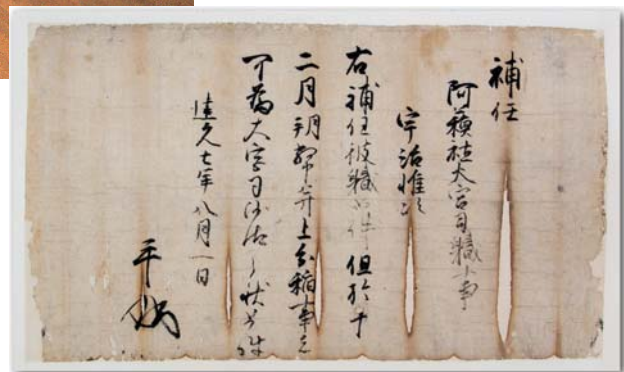 補任
阿蘇社大宮司職事
宇治惟次
右補任彼職如件但於十
二月朔幣并上分稲事者
可為大宮司沙汰之状如件
建久七年八月一日
平